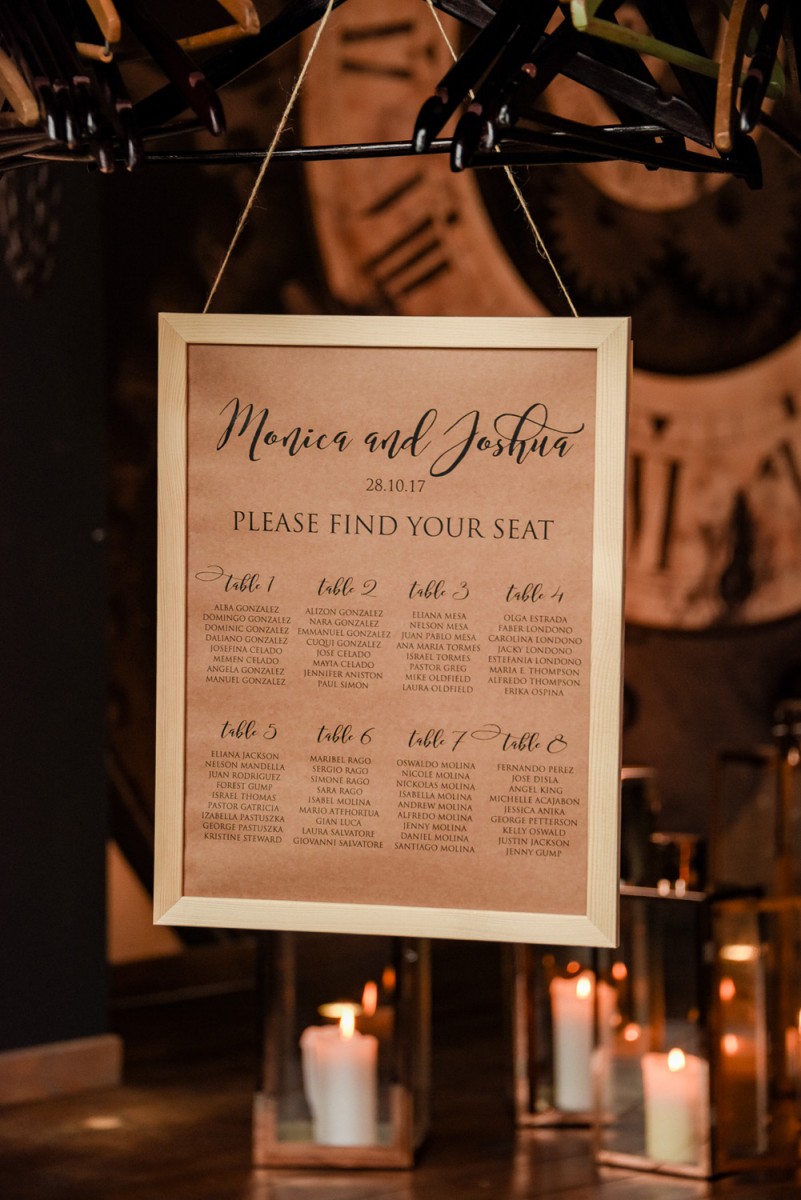 Monica and Joshua
28.10.17
PLEASE FIND YOUR SEAT
table 1
ALBA GONZALEZ
DOMINGO GONZALEZ
DOMINIC GONZALEZ
DALIANO GONZALEZ
JOSEFINA CELADO
MEMEN CELADO
ANGELA GONZALEZ
MANUEL GONZALEZ
table 2
ALIZON GONZALEZ
NARA GONZALEZ
EMMANUEL GONZALEZ
CUQUI GONZALEZ
JOSE CELADO
MAYIA CELADO
JENNIFER ANISTON
PAUL SIMON
table 3
ELIANA MESA
NELSON MESA
JUAN PABLO MESA
ANA MARIA TORMES
ISRAEL TORMES
PASTOR GREG
MIKE OLDFIELD
LAURA OLDFIELD
table 4
OLGA ESTRADA
FABER LONDONO
CAROLINA LONDONO
JACKY LONDONO
ESTEFANIA LONDONO
MARIA E. THOMPSON
ALFREDO THOMPSON
ERIKA OSPINA
table 5
ELIANA JACKSON
NELSON MANDELLA
JUAN RODRIGUEZ
FOREST GUMP
ISRAEL THOMAS
PASTOR GATRICIA
IZABELLA PASTUSZKA
GEORGE PASTUSZKA
KRISTINE STEWARD
table 6
MARIBEL RAGO
SERGIO RAGO
SIMONE RAGO
SARA RAGO
ISABEL MOLINA
MARIO ATEHORTUA
GIAN LUCA
LAURA SALVATORE
GIOVANNI SALVATORE
table 7
OSWALDO MOLINA
NICOLE MOLINA
NICKOLAS MOLINA
ISABELLA MOLINA
ANDREW MOLINA
ALFREDO MOLINA
JENNY MOLINA
DANIEL MOLINA
SANTIAGO MOLINA
table 8
FERNANDO PEREZ
JOSE DISLA
ANGEL KING
MICHELLE ACAJABON
JESSICA ANIKA
GEORGE PETTERSON
KELLY OSWALD
JUSTIN JACKSON
JENNY GUMP